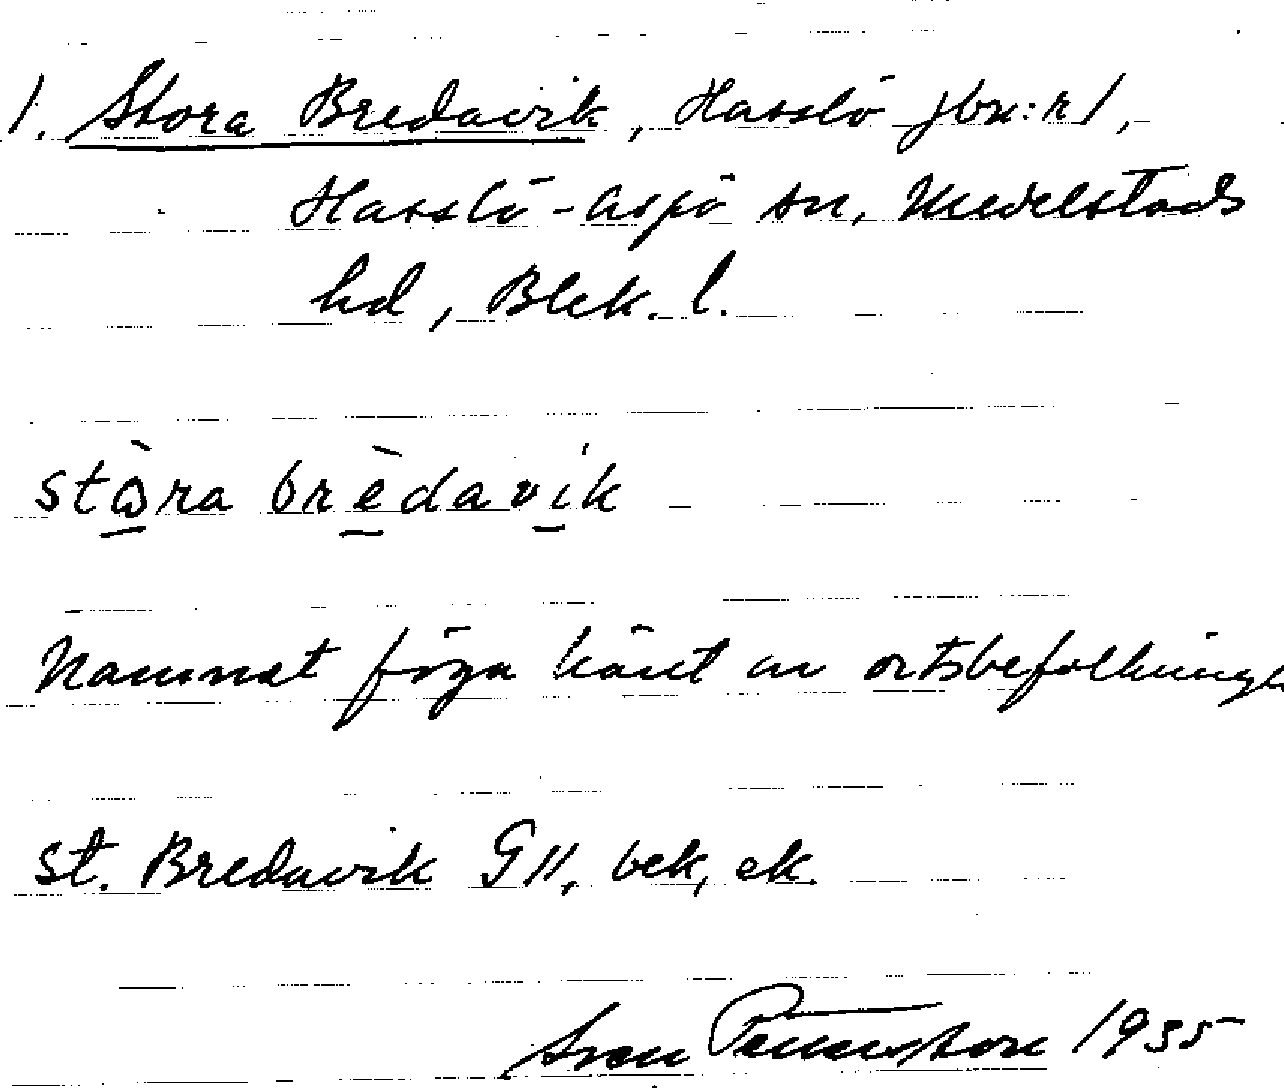 1. Stora Bredavik, Hasslö jbn:r 1,
Hasslö-Aspö sn, Medelstads
hd, Blek. l.
stòra brèdavik
Namnet föga känt av ortsbefolkningen
St. Bredavik G11, bek, ek.
Sven Petersson 1935